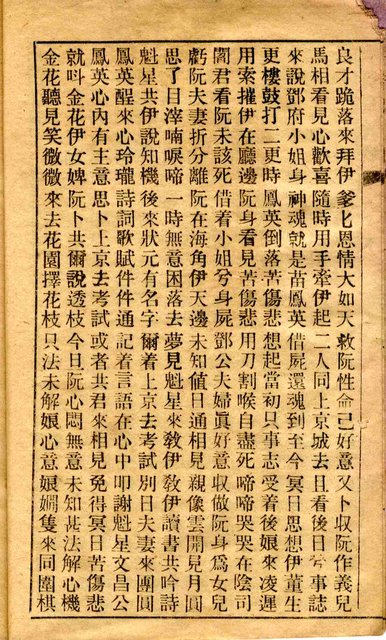 良才跪落來拜伊爹匕恩情大如天救阮性命己好意又卜収阮作義兒
馬相看見心歡喜隨時用手牽伊起二人同上京城去且看後日兮事誌
來說鄧府小姐身神魂就是苗鳳英借屍還魂到至今冥日思想伊董生
更樓鼓打二更時鳳英倒落苦傷悲想起當初只事志受着後娘來凌遲
用索摧伊在廳邊阮身看見苦傷悲用刀割喉自盡死啼啼哭哭在陰司
閻君看阮未該死借着小姐兮身屍鄧公夫婦眞好意収做阮身爲女兒
虧阮夫妻折分離阮在海角伊天邊未知値日通相見親像雲開見月圓
思了日滓喃唳啼一時無意困落去夢見魁星來敎伊敎伊讀書共吟詩
魁星共伊說知機後來狀元有名字爾着上京去考試別日夫妻來團圓
鳳英醒來心玲瓏詩詞歌賦件件通記着言語在心中叩謝魁星文昌公
鳳英心內有主意思卜上京去考試或者共君來相見免得冥日苦傷悲
就呌金花伊女婢阮卜共爾說透枝今日阮心悶無意未知甚法解心機
金花聽見笑微微來去花園擇花枝只法未解娘心意娘嫺隻來同圍棋